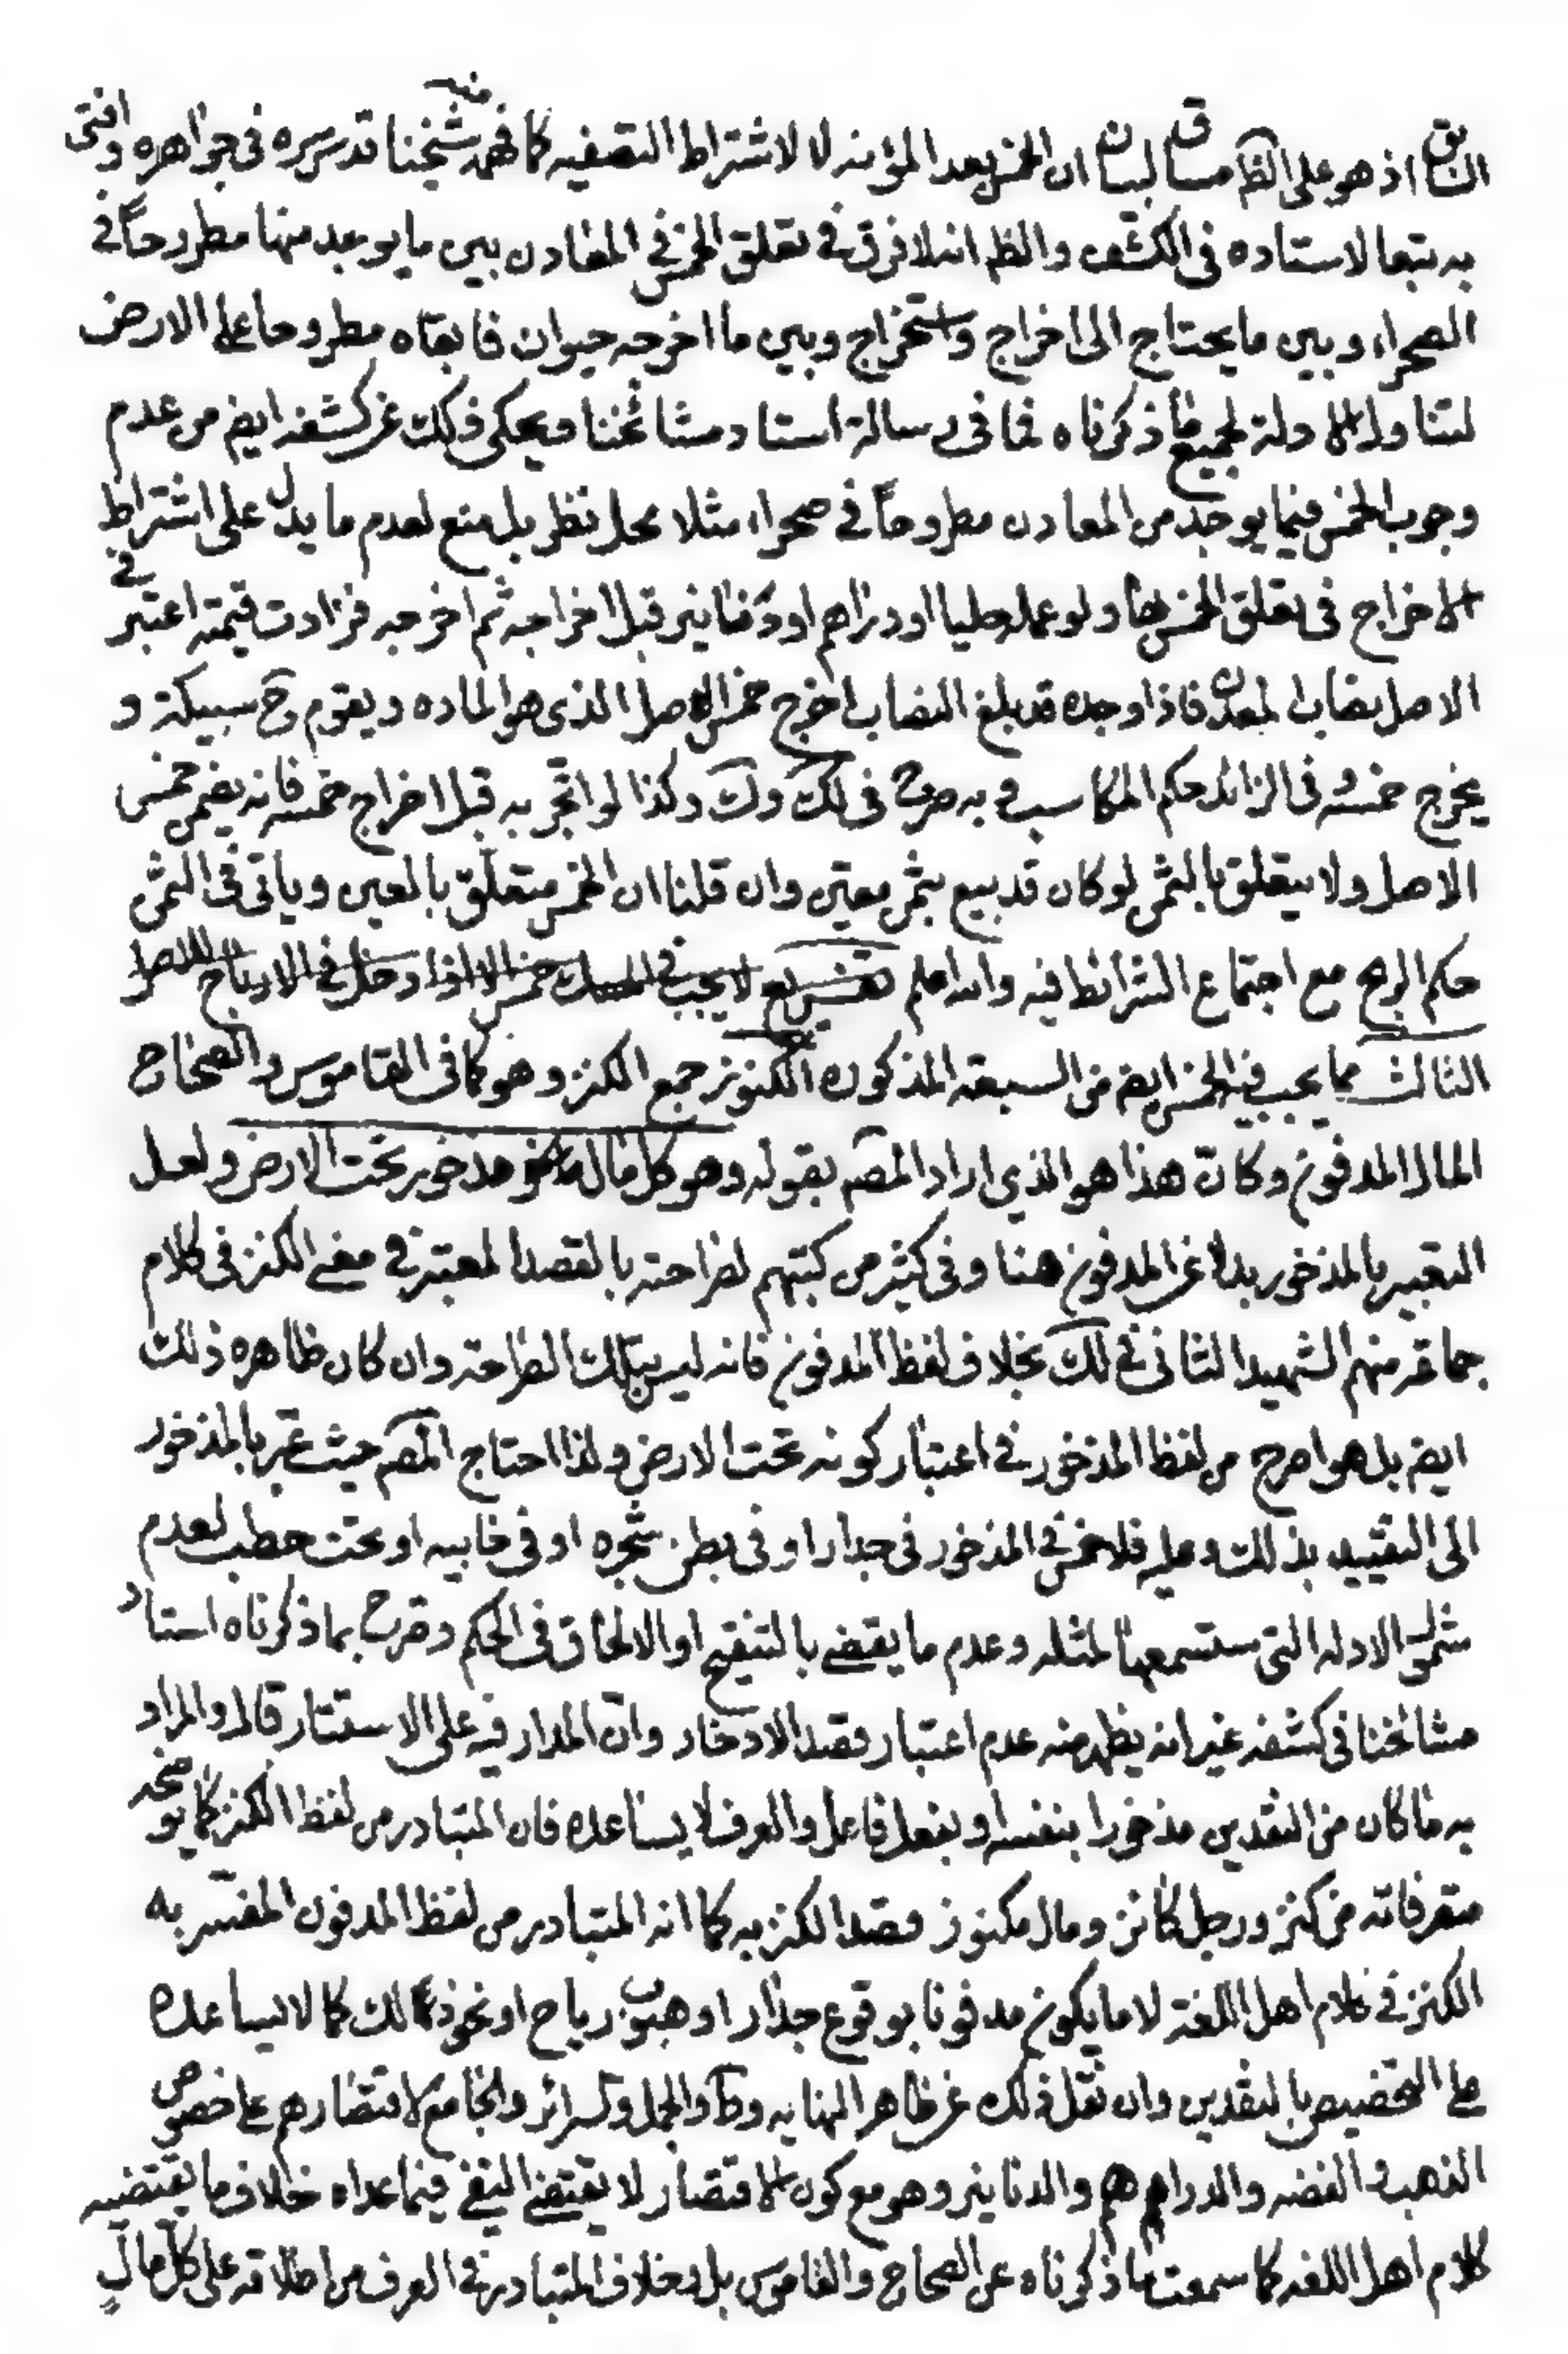 السابق اذ هو على الظ مساق لبيان ان الخمس بعد المؤنه لا لاشتراط التصفيه كما فهمه منه شيخنا قدس سره في جواهره وافتى
به تبعا لاستاده في الكشف والظم انه لا فرق في تعلق الخمس في المعادن بين ما يوجد منها مطروحاً في
الصحراء وبين ما يحتاج الى اخراج واستخراج وبين ما اخرجه حيوان فابقاه مطروحا على الارض
لتناول الادلة لجميع ما ذكرناه فما في رسالة استاد مشائخنا ويحكى ذلك عن كشفه ايضم من عدم
وجوب الخمس فيما يوجد من المعادن مطروحاً في صحراء مثلا محل نظر بل منع لعدم ما يدل على اشتراط
الاخراج في تعلق الخمس بها ولو عمله حليا او دراهم او دنانير قبل اخراجه ثم اخرجه فزادت قيمته اعتبر في
الاصل نصاب المعدن فاذا وجده قد بلغ النصاب اخرج خمس الاصل الذي هو الماده ويقوم ح سبيكة و
يخرج خمسه وفي الزائد حكم المكاسب وبه صرح في لك وك وكذا لو اتجر به قبل اخراج خمسه فانه يضمن خمس
الاصل ولا يتعلق بالثمن لو كان قد بيع بثمن معين وان قلنا ان الخمس متعلق بالعين وياتي في الثمن
حكم الربح مع اجتماع الشرائط فيه والله اعلم تفريع لا يجب في المسك خمس الا اذا دخل في الارباح
الثالث مما يجب فيه الخمس ايضم من السبعة المذكوره الكنوز جمع الكنز وهو كما في القاموس والصحاح
المال المدفون وكانّ هذا هو الذي اراد المصم بقوله وهو كل مال مذخور تحت الارض ولعل
التعبير بالمذخور بدلا عن المدفون هنا وفي كثير من كتبهم لصراحته بالقصد المعتبر في معنى الكنز في كلام
جماعة منهم الشهيد الثاني في لك بخلاف لفظ المدفون فانه ليس بتلك الصراحة وان كان ظاهره ذلك
ايضم بل هو اصرح من لفظ المذخور في اعتبار كونه تحت الارض ولذا احتاج المصم حيث عبّر بالمذخور
الى التقييد بذلك وعليه فلا خمس في المذخور في جدار او في بطن شجره او في خابيه او تحت حطب لعدم
شمول الادله التي ستسمعها لمثله وعدم ما يقضي بالتنقيح او الالحاق في الحكم وصرح بما ذكرناه استاد
مشائخنا في كشفه غير انه يظهر منه عدم اعتبار قصد الادخار وان المدار فيه على الاستتار قال والمراد
به ما كان من النقدين مذخورا بنفسه او بفعل فاعل والعرف لا يساعده فان المتبادر من لفظ الكنز كما يوضحه
متعرفاته من كنز ورجل كانز ومال مكنوز قصد الكنز به كما انه المتبادر من لفظ المدفون المفسّر به
الكنز في كلام اهل اللغة لا ما يكون مدفونا بوقوع جدار او هبوب رياح او نحو ذلك كما لا يساعده
على التخصيص بالنقدين وان نقل ذلك عن ظاهر النهايه وط والجمل والسرائر والجامع لاقتصارهم على خصوص
الذهب والفضه والدراهم والدنانير وهو مع كون الاقتصار لا يقتضي النفي فيما عداه خلاف ما يقتضيه
كلام اهل اللغه كما سمعت ما ذكرناه عن الصحاح والقاموس بل وخلاف المتبادر في العرف من اطلاقه على كل مال